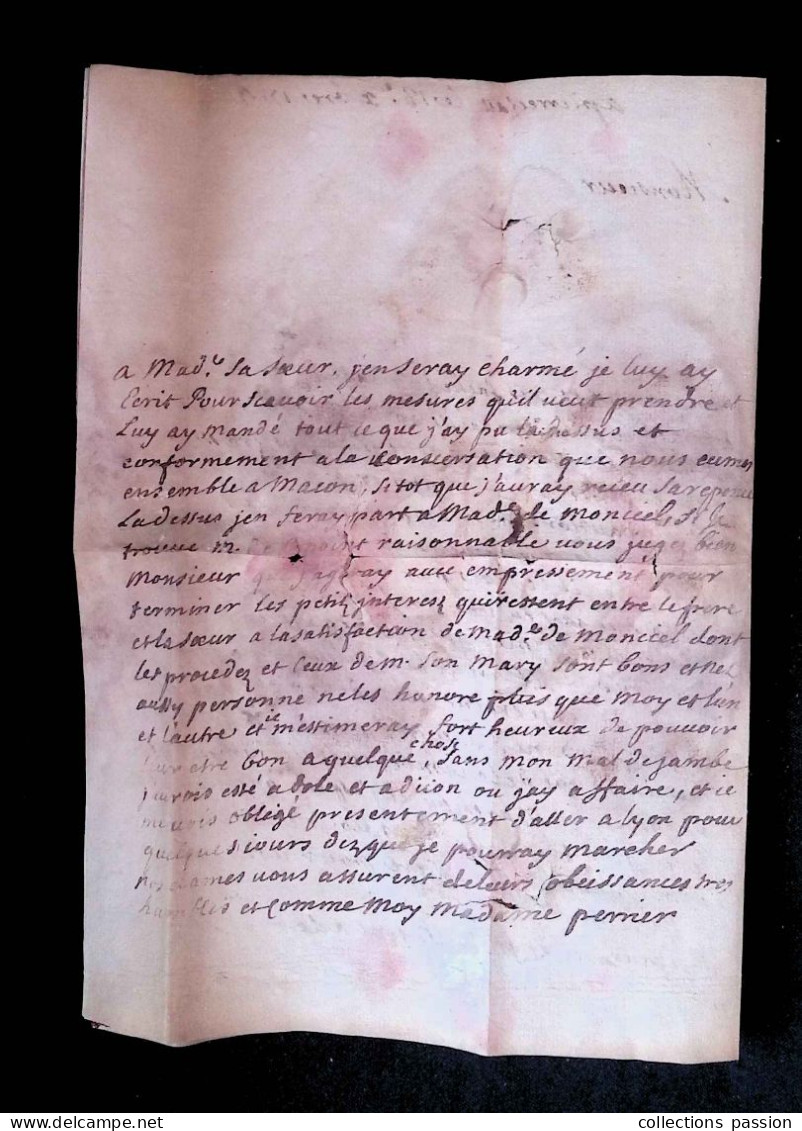 Monsieur
a Mad.e sa sœur, j'en seray charmé je luy ay
Ecrit Pour scavoir les mesures qu'il veut prendre et
Luy ay mandé tout ce que j'ay pu la dessus et
conformement a la Conversation que nous eumes
ensemble a Macon, si tot que j'auray reçeu sa reponce
La dessus jen feray part a Mad.e de Monciel, si je
trouve M. raisonnable vous jugez bien
Monsieur que j'agiray avec empressement pour
terminer les petitz interesz qui restent entre le frere
et la sœur a la satisfaction de Mad.e de Monciel dont
les procedez et Ceux de M. son Mary sont bons et
aussy personne ne les honore plus que Moy et l'un
et l'autre et ie m'estimeray fort heureux de pouvoir
leur etre bon a quelque chose, sans mon Mal de jambe
j'aurois esté a dole et a dijon ou j'ay affaire, et ie
me vois obligé presentement d'aller a lyon pour
quelques iours dez que je pourray Marcher
nos dames vous assurent de leurs obeissances tres
humbles et Comme Moy Madame perrier
collections passion